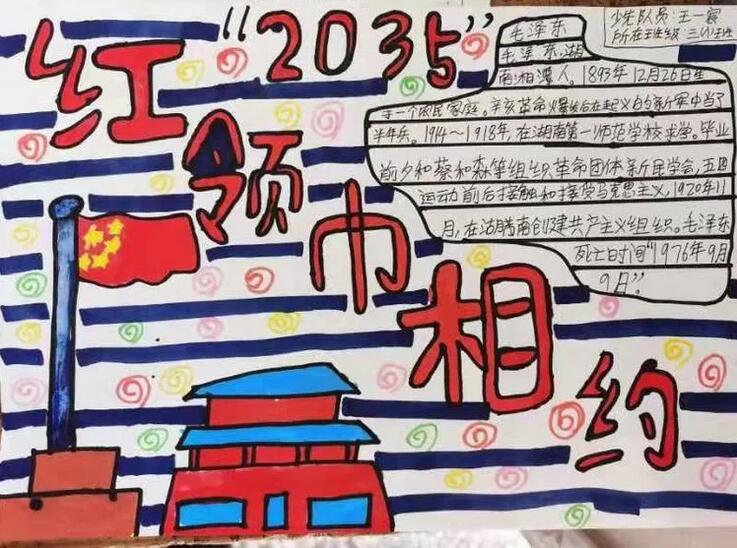 红领巾相约
"2035"
少先队员:王一宸
所在班级 三(4)班
毛泽东
毛泽东,湖
南湘潭人。1893年12月26日生
于一个农民家庭。辛亥革命爆发后在起义的新军中当了
半年兵。1914～1918年,在湖南第一师范学校求学。毕业
前夕和蔡和森等组织革命团体新民学会,五四
运动前后接触和接受马克思主义,1920年11
月,在湖南创建共产主义组织。毛泽东
死亡时间"1976年9月
9日"。